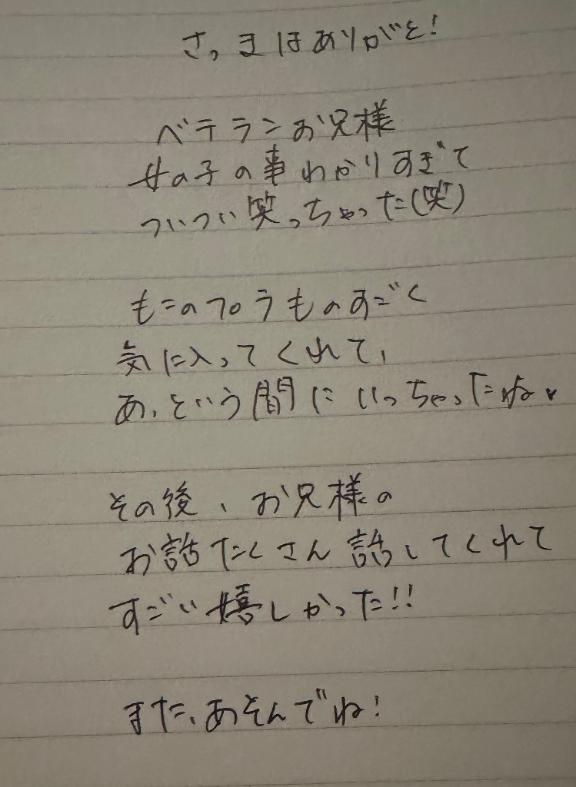 さっきはありがと!
ベテランお兄様
女の子の事わかりすぎて
ついつい笑っちゃった(笑)
もこのフロうものすごく
気に入ってくれて、
あっという間にいっちゃったね♥
その後、お兄様の
お話たくさん話してくれて
すごい嬉しかった!!
また、あそんでね!